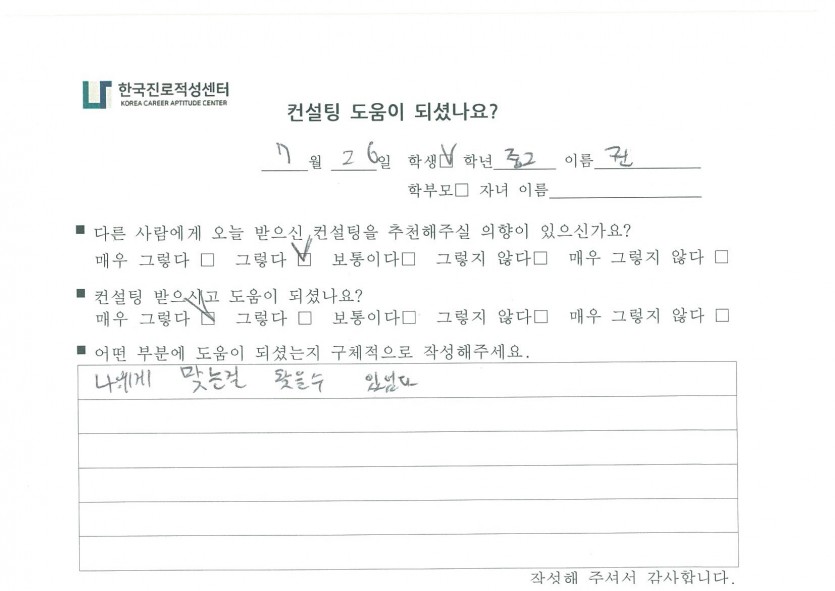 한국진로적성센터
KOREA CAREER APTITUDE CENTER
컨설팅 도움이 되셨나요?
7 월 26 일 학생☑ 학년 중2 이름 전
학부모□ 자녀 이름
■ 다른 사람에게 오늘 받으신 컨설팅을 추천해주실 의향이 있으신가요?
매우 그렇다 □ 그렇다 ☑ 보통이다□ 그렇지 않다□ 매우 그렇지 않다 □
■ 컨설팅 받으시고 도움이 되셨나요?
매우 그렇다 ☑ 그렇다 □ 보통이다□ 그렇지 않다□ 매우 그렇지 않다 □
■ 어떤 부분에 도움이 되셨는지 구체적으로 작성해주세요.
나에게 맞는걸 찾을수 있었다
작성해 주셔서 감사합니다.